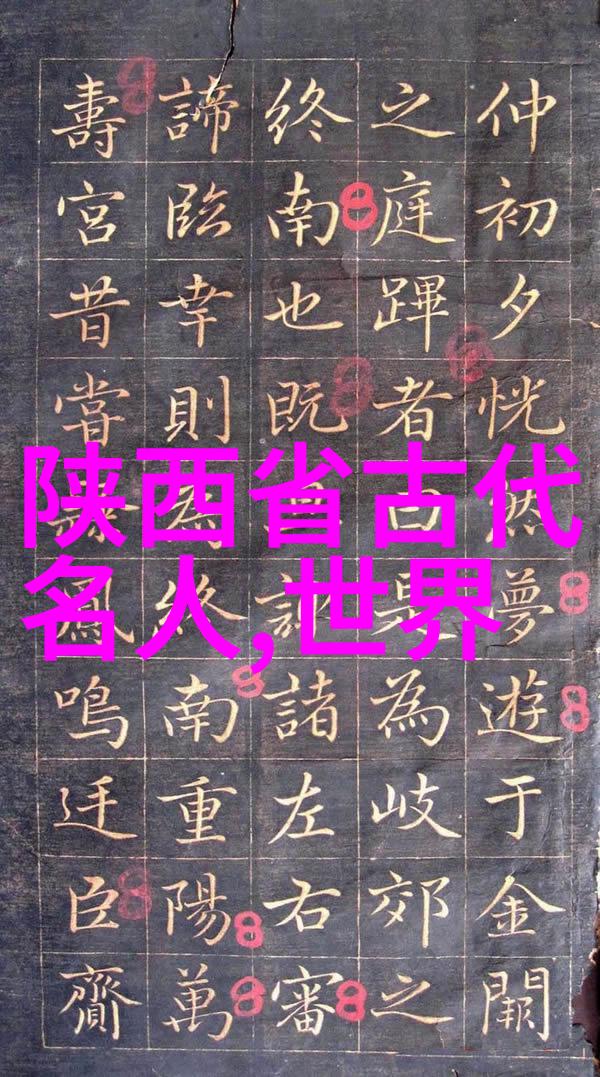 仲初夕恍然夢遊于金闕
之庭蹕者曰是為岐郊之
終南也既訊諸左右審
諦臨幸則為終南重陽萬
壽宮昔甞鳳鳴廷臣齎
陕西省古代
名人,世界